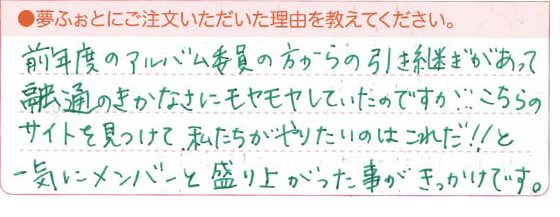 ●夢ふぉとにご注文いただいた理由を教えてください。
前年度のアルバム委員の方からの引き継ぎがあって
融通のきかなさにモヤモヤしていたのですが…こちらの
サイトを見つけて、私たちがやりたいのはこれだ!!と
一気にメンバーと盛り上がった事がきっかけです。